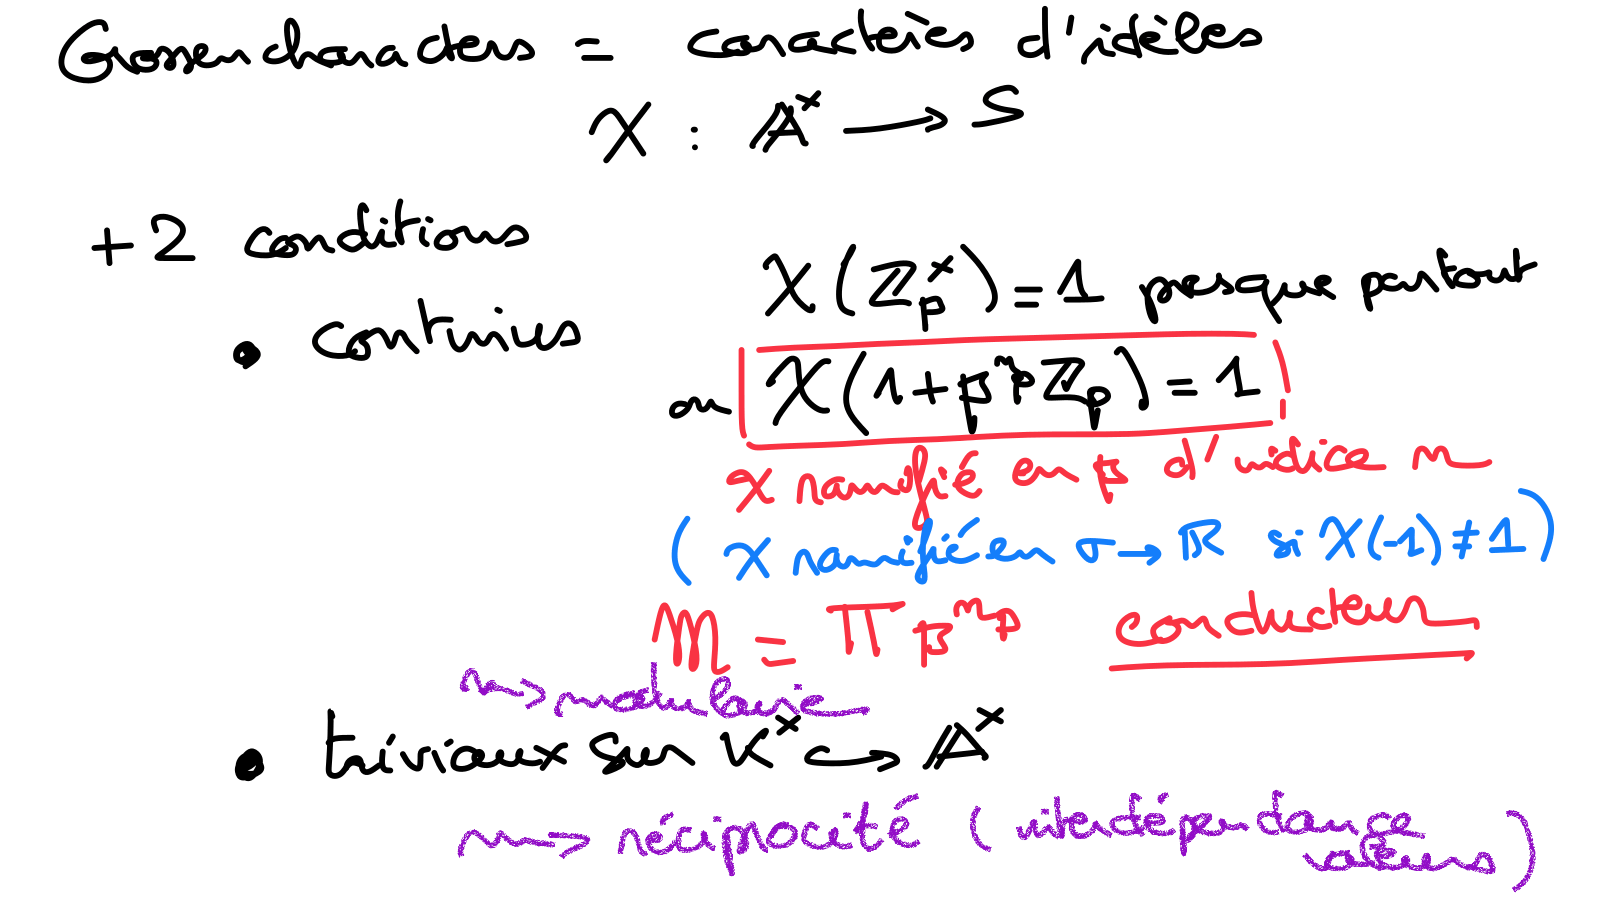 Grossencharacters = caractères d'idèles
χ : 𝔸^× → S
+ 2 conditions
• continus
χ(ℤ_p^×) = 1 presque partout
ou χ(1+𝔭^{m_p}ℤ_p) = 1
χ ramifié en 𝔭 d'indice m
(χ ramifié en σ → ℝ si χ(-1) ≠ 1)
𝔐 = ∏ 𝔭^{m_p} conducteur
⇝ modulaire
• triviaux sur K^× ↪ 𝔸^×
⇝ réciprocité (interdépendance
valeurs)